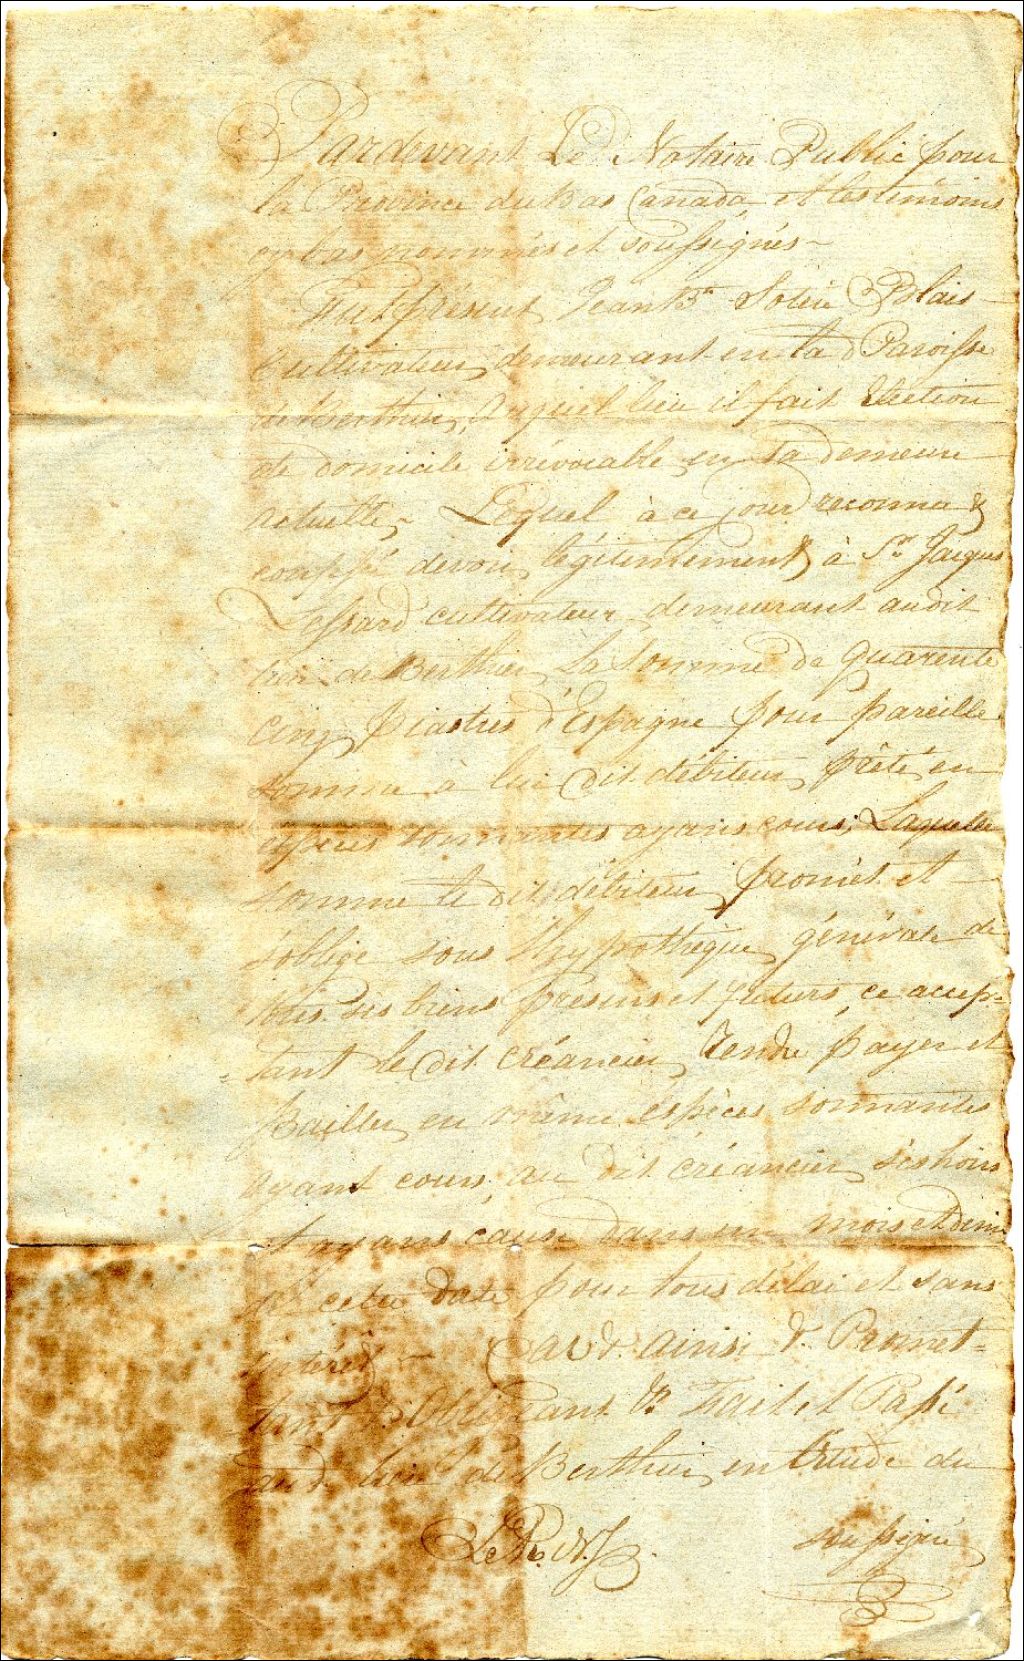 Pardevant Le Notaire Public pour
la Province du Bas Canada et les témoins
cy bas nommés et soussignés ~
Fut présent Jean Bte
Cultivateur, demeurant en la Paroisse
de Berthier, auquel lieu il fait Election
de domicile irrévocable en sa demeure
actuelle, Lequel à ce jour reconnu &
confessé devoir légitimement à Sr Jacques
Lessard cultivateur demeurant audit
lieu de Berthier, La Somme de Quarente
cinq piastres d'Espagne pour pareille
somme à lui dit débiteur, prêté en
espèces sonnantes ayans cours; Laquelle
somme le dit débiteur, promet et
s'oblige sous l'hypothèque générale de
tous ses biens presens et futurs, ce accep=
=tant le dit créancier, rendre payer et
Bailler en même espèces sonnantes
ayant cours, au dit créancier, ses hoirs
et ayans cause dans un mois et demi
de cette date pour tous délai et sans
intérêt ~ Car &. ainsi &. Promet=
tant &. Obligeant &. Fait et Passé
au dt lieu de Berthier, en l'Etude du
soussigné